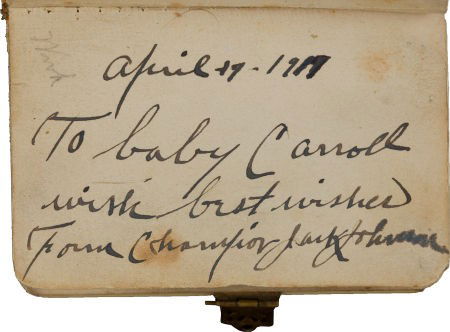 April 19 - 1911
To baby Carroll
with best wishes
From Champion Jack Johnson